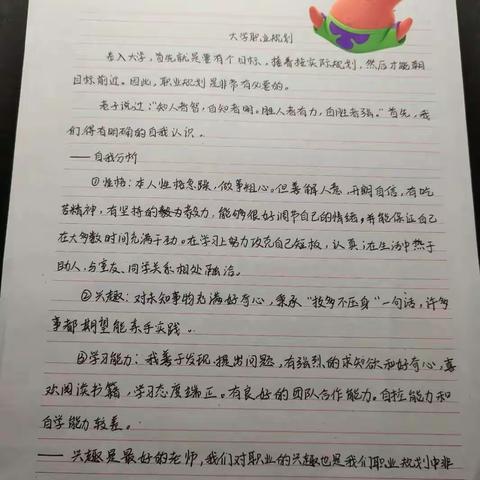 大学职业规划
卷入大学，首先就是要有个目标，接着按实际规划，然后才能朝
目标前进。因此，职业规划是非常有必要的。
老子说过："知人者智，自知者明。胜人者有力，自胜者强。"首先，我
们得有明确的自我认识。
——自我分析
①性格：本人性格急躁，做事粗心。但善解人意，开朗自信，有吃
苦精神，有坚持的毅力，能够很好调节自己的情绪，并能保证自己
在大多数时间充满干劲。在学习上努力攻克自己短板，认真；在生活中热于
助人，与室友、同学关系相处融洽。
②兴趣：对未知事物充满好奇心，秉承"技多不压身"一句话，许多
事都期望能亲手实践。
③学习能力：我善于发现、提出问题，有强烈的求知欲和好奇心，喜
欢阅读书籍，学习态度端正。有良好的团队合作能力。自控能力和
自学能力较差。
——兴趣是最好的老师，我们对职业的兴趣也是我们职业规划中非